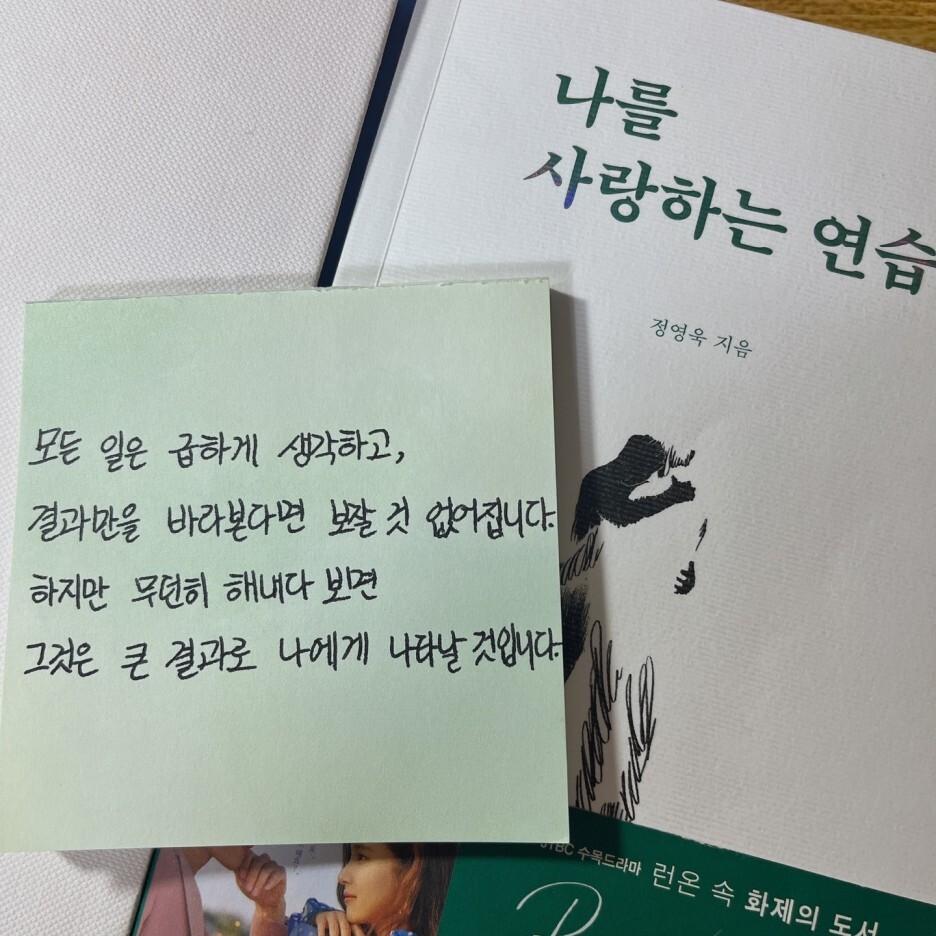 나를
사랑하는 연습
정영욱 지음
모든 일은 급하게 생각하고,
결과만을 바라본다면 보잘 것 없어집니다.
하지만 무던히 해내다 보면
그것은 큰 결과로 나에게 나타날 것입니다.
JTBC 수목드라마 런온 속 화제의 도서